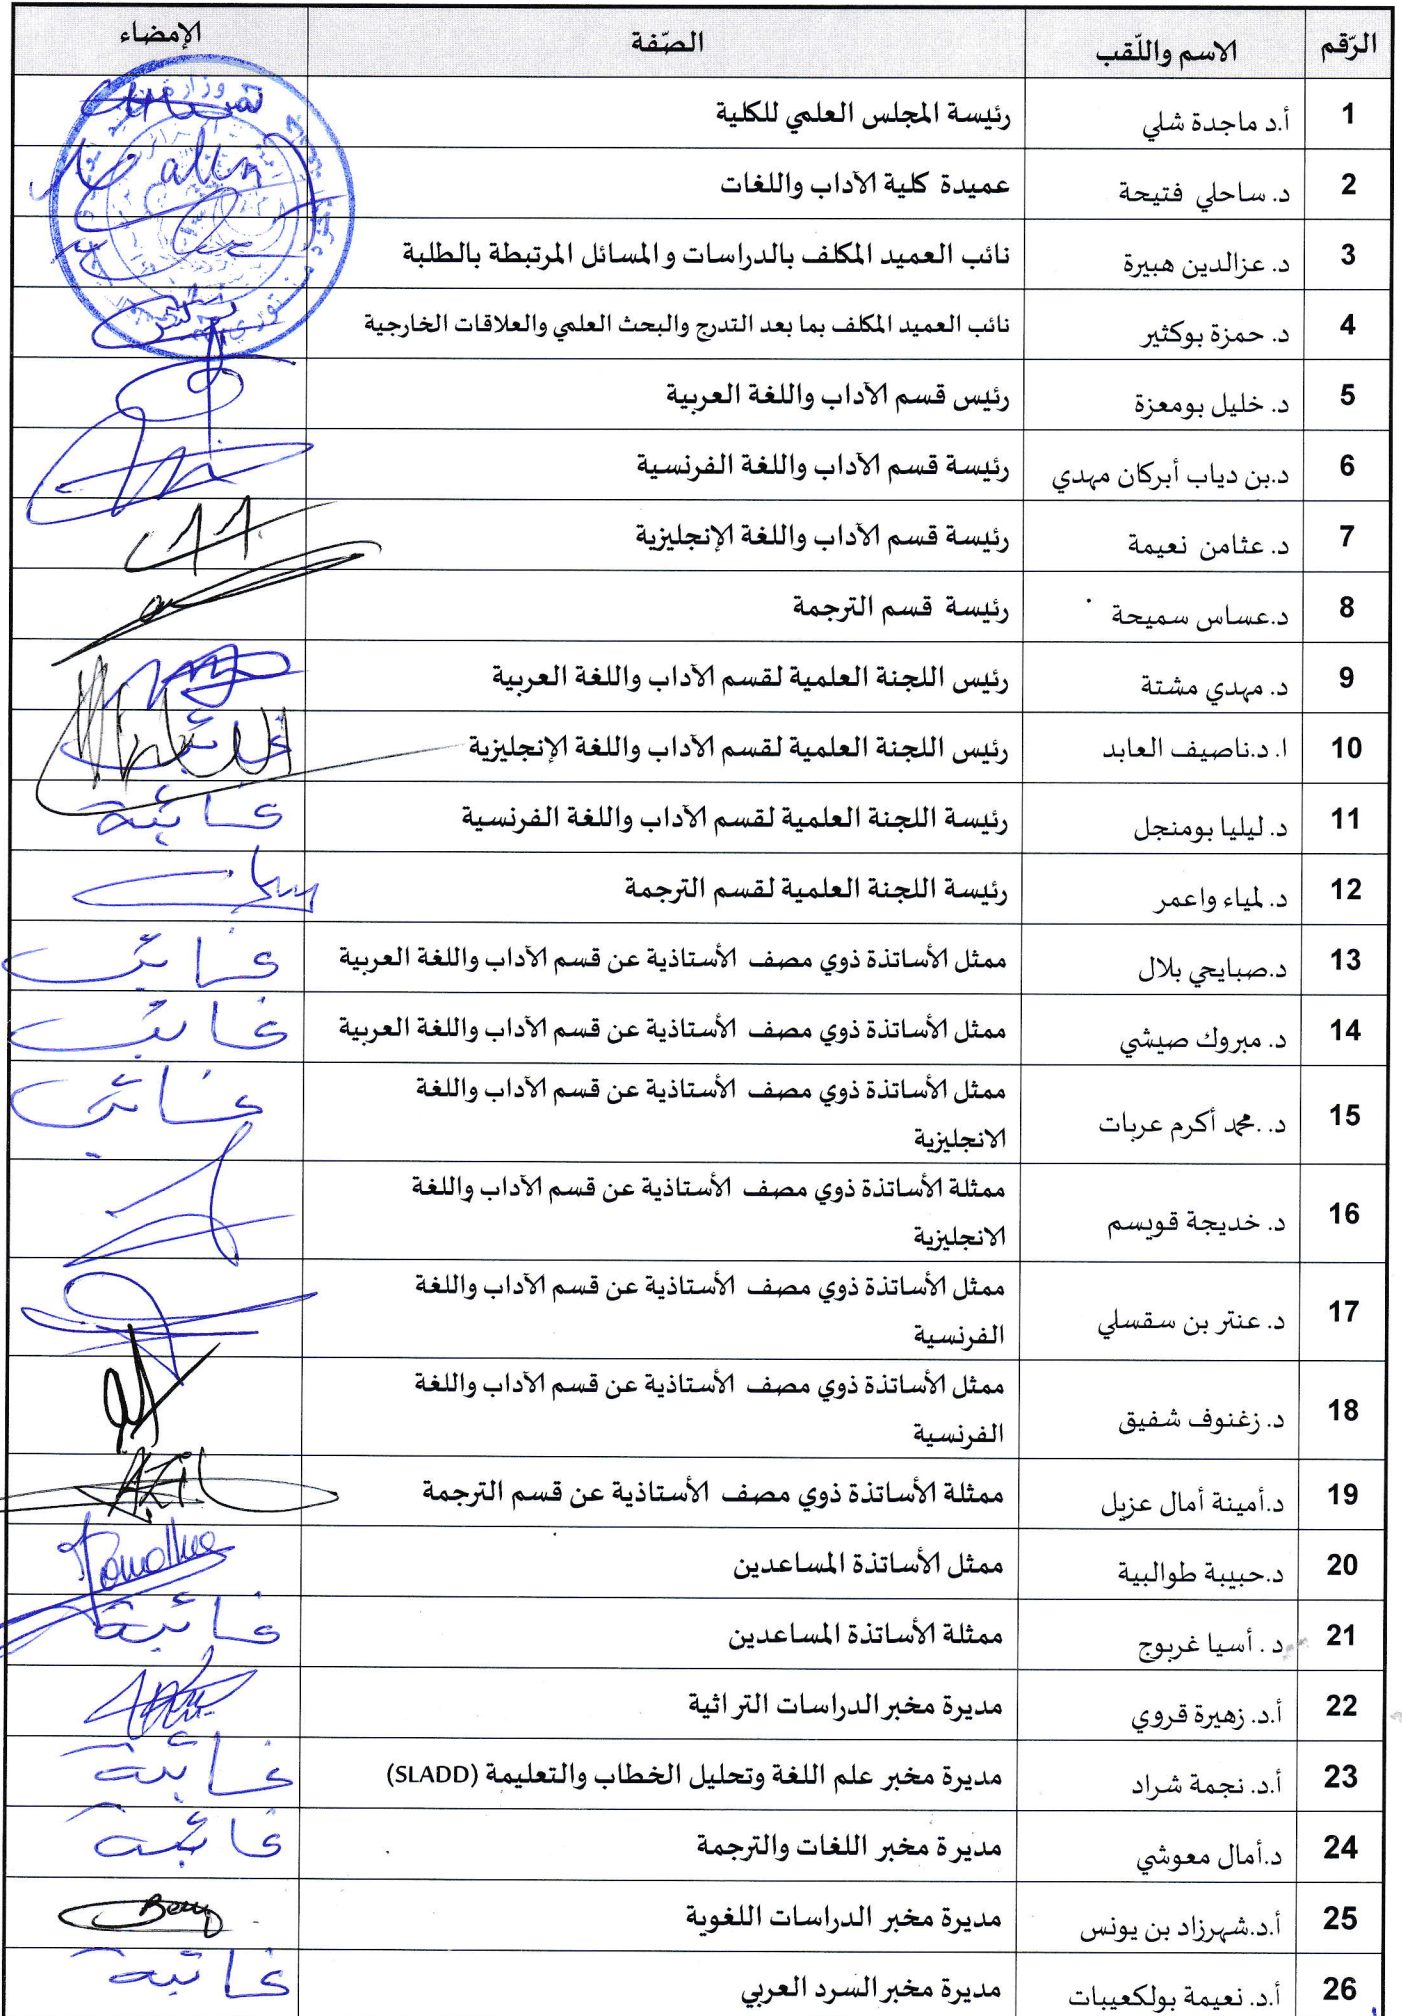 الرّقم الاسم واللّقب الصّفة الإمضاء
1 أ.د ماجدة شلي رئيسة المجلس العلمي للكلية
2 د. ساحلي فتيحة عميدة كلية الآداب واللغات
3 د. عزالدين هبيرة نائب العميد المكلف بالدراسات والمسائل المرتبطة بالطلبة
4 د. حمزة بوكثير نائب العميد المكلف بما بعد التدرج والبحث العلمي والعلاقات الخارجية
5 د. خليل بومعزة رئيس قسم الآداب واللغة العربية
6 د.بن دياب أبركان مهدي رئيسة قسم الآداب واللغة الفرنسية
7 د. عثامن نعيمة رئيسة قسم الآداب واللغة الإنجليزية
8 د.عساس سميحة رئيسة قسم الترجمة
9 د. مهدي مشتة رئيس اللجنة العلمية لقسم الآداب واللغة العربية
10 ا. د.ناصيف العابد رئيس اللجنة العلمية لقسم الآداب واللغة الإنجليزية غائب
11 د. ليليا بومنجل رئيسة اللجنة العلمية لقسم الآداب واللغة الفرنسية غائبة
12 د. لمياء واعمر رئيسة اللجنة العلمية لقسم الترجمة
13 د.صبايحي بلال ممثل الأساتذة ذوي مصف الأستاذية عن قسم الآداب واللغة العربية غائب
14 د. مبروك صيشي ممثل الأساتذة ذوي مصف الأستاذية عن قسم الآداب واللغة العربية غائب
15 د. .محمد أكرم عربات ممثل الأساتذة ذوي مصف الأستاذية عن قسم الآداب واللغة غائب
الانجليزية
16 د. خديجة قويسم ممثلة الأساتذة ذوي مصف الأستاذية عن قسم الآداب واللغة
الانجليزية
17 د. عنتر بن سقسلي ممثل الأساتذة ذوي مصف الأستاذية عن قسم الآداب واللغة
الفرنسية
18 د. زغنوف شفيق ممثل الأساتذة ذوي مصف الأستاذية عن قسم الآداب واللغة
الفرنسية
19 د.أمينة أمال عزيل ممثلة الأساتذة ذوي مصف الأستاذية عن قسم الترجمة
20 د.حبيبة طوالبية ممثل الأساتذة المساعدين
21 د . أسيا غربوج ممثلة الأساتذة المساعدين غائبة
22 أ.د. زهيرة قروي مديرة مخبر الدراسات التراثية
23 أ.د. نجمة شراد مديرة مخبر علم اللغة وتحليل الخطاب والتعليمة (SLADD) غائبة
24 د.أمال معوشي مديرة مخبر اللغات والترجمة غائبة
25 أ.د.شهرزاد بن يونس مديرة مخبر الدراسات اللغوية
26 أ.د. نعيمة بولكعيبات مديرة مخبر السرد العربي غائبة